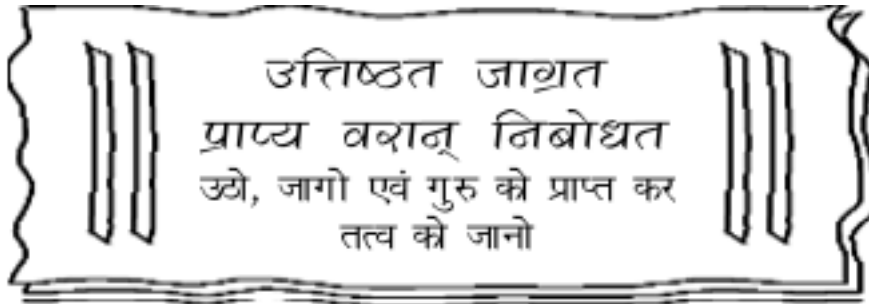 उत्तिष्ठत जाग्रत
प्राप्य वरान् निबोधत
उठो, जागो एवं गुरु को प्राप्त कर
तत्व को जानो